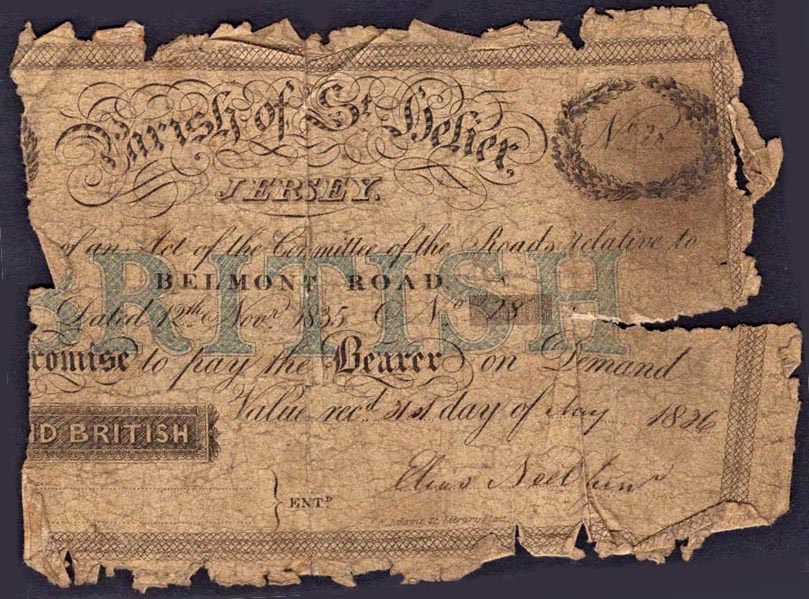 Parish of St Helier,
JERSEY.
No 28
of an Act of the Committee of the Roads relative to
BELMONT ROAD
BRITISH
Dated 12th Novr 1835 No 28
romise to pay the Bearer on Demand
Value recd 31st day of May 1836
ND BRITISH
Elias Neel
ENTD